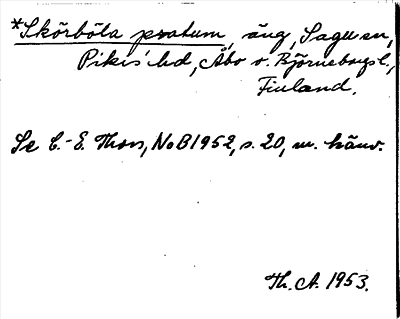 *Skörböta pratum, äng, Sagu sn,
Pikis hd, Åbo o. Björneborgs l.,
Finland.
Se C.-E. Thors, NoB 1952, s. 20, m. hänv.
Th. A. 1953.